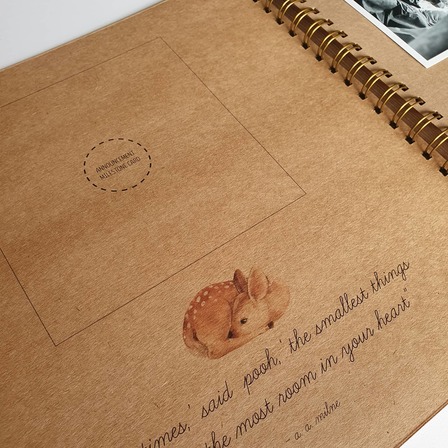 ANNOUNCEMENT
MILESTONE CARD
said pooh,' the smallest things
the most room in your heart"
- a. a. milne